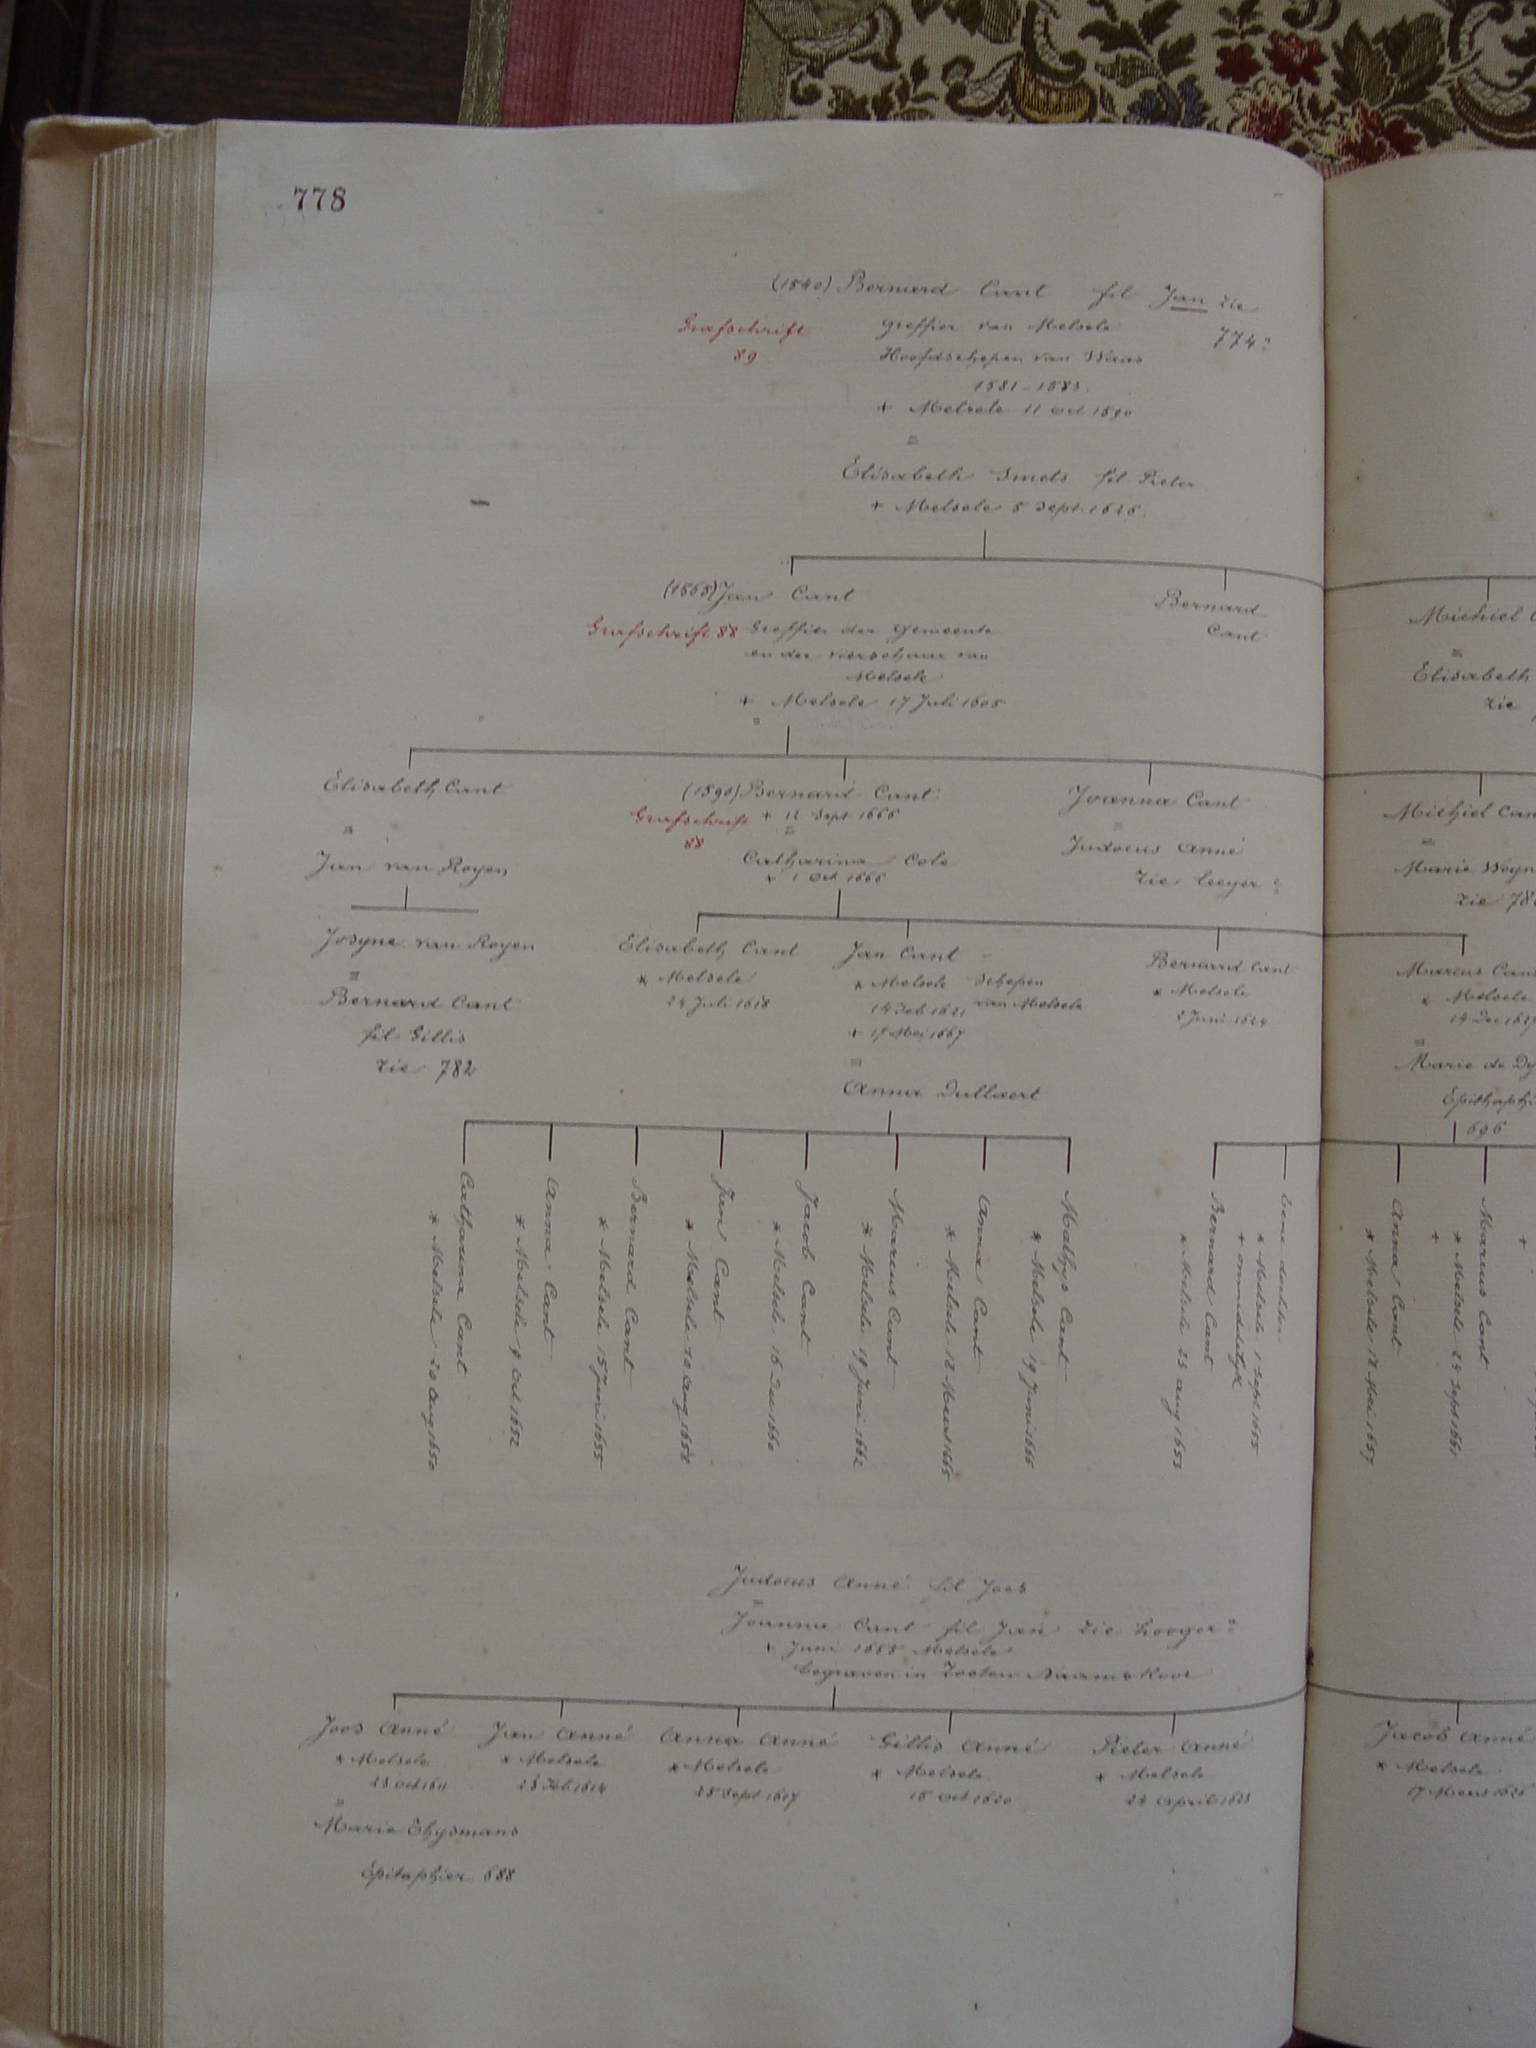 778
(1540) Bernard Cant fil Jan zie
774
Grafschrift
89
greffier van Melsele
Hoofdschepen van Waas
1581-1583.
+ Melsele 11 Oct. 1590
=
Elisabeth Smets fil Pieter
+ Melsele 5 Sept. 1626.
(1565) Jan Cant
Grafschrift 88
Greffier der gemeente
en der vierschaar van
Melsele
+ Melsele 17 Juli 1605
=
Bernard
Cant
Michiel
=
Elisabeth
zie
Elisabeth Cant
=
Jan van Royen
(1590) Bernard Cant
Grafschrift
88
+ 12 Sept 1666
=
Catharina Cole
+ 1 Oct. 1666
Joanna Cant
=
Judocus Anné
zie leeger
Michiel Can
=
Marie Weyn
zie 78
Josyne van Royen
=
Bernard Cant
fil Gillis
zie 782
Elisabeth Cant
* Melsele
24 Juli 1618
Jan Cant
* Melsele
14 Feb 1621
+ 17 Mei 1667
Schepen
van Melsele
=
Anna Dullaert
Bernard Cant
* Melsele
2 Juni 1624
Marcus Can
* Melsele
14 Dec 1627
=
Marie de Dy
Epithaphi
696
Catharina Cant
* Melsele 20 Aug 1650
Anna Cant
* Melsele 9 Oct 1652
Bernard Cant
* Melsele 15 Juni 1655
Jan Cant
* Melsele 20 Aug 1658
Jacob Cant
* Melsele 16 Dec 1660
Marcus Cant
* Melsele 19 Juni 1662
Anna Cant
* Melsele 12 Meert 1665
Mathys Cant
* Melsele 19 Juni 1666
Bernard Cant
* Melsele 23 aug 1653
Eene dochter
* Melsele 1 Sept 1655
+ onmiddelijk
Anna Cant
* Melsele 12 Mei 1657
Marcus Cant
* Melsele 24 Sept 1661
+
Judocus Anné fil Joos
=
Joanna Cant fil Jan zie hooger
+ Juni 1655 Melsele
begraven in Zoeten Naamskoor
Joos Anné
* Melsele
23 Oct 1611
=
Marie Thysmans
Epitaphier 688
Jan Anné
* Melsele
23 Feb 1614
Anna Anné
* Melsele
28 Sept 1617
Gillis Anné
* Melsele
18 Oct 1620
Pieter Anné
* Melsele
24 April 1623
Jacob Anné
* Melsele
17 Meert 1626